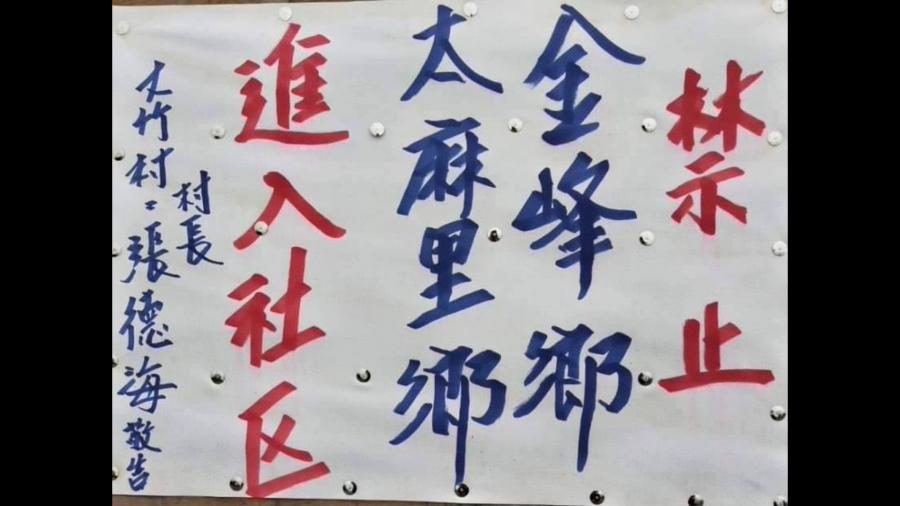 禁止
金峰鄉
太麻里鄉
進入社区
村長
大竹村：張德海敬告